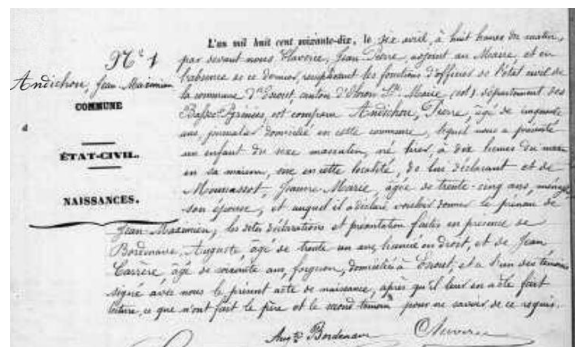 N° 1
Andichon, Jean Maximien
COMMUNE
d
ÉTAT-CIVIL.
NAISSANCES.
L'an mil huit cent soixante-dix, le six avril, à huit heures du matin,
par devant nous Claverie, Jean Pierre, adjoint au Maire et en
l'absence de ce dernier, remplissant les fonctions d'officier de l'état civil de
la commune d'Escout, canton d'Oloron Ste Marie (est) département des
Basses-Pyrénées, est comparu Andichon, Pierre, âgé de cinquante
ans, journalier domicilié en cette commune, lequel nous a présenté
un enfant du sexe masculin, né hier, à dix heures du matin
en sa maison, sise en cette localité, de lui déclarant et de
Moncassot, Jeanne Marie, âgée de trente-cinq ans, ménagère
son épouse, et auquel il a déclaré vouloir donner le prénom de
Jean Maximien, les dites déclarations et présentation faites en présence de
Bordenave, Auguste, âgé de trente un ans, licencié en droit, et de Jean
Carrère, âge de soixante ans, forgeron, domiciliés à Escout, et a l'un des témoins
signé avec nous le présent acte de naissance, après qu'il leur en a été fait
lecture, ce que n'ont fait le père et le second témoin pour ne savoir de ce requis.
Aug.te Bordenave Claverie